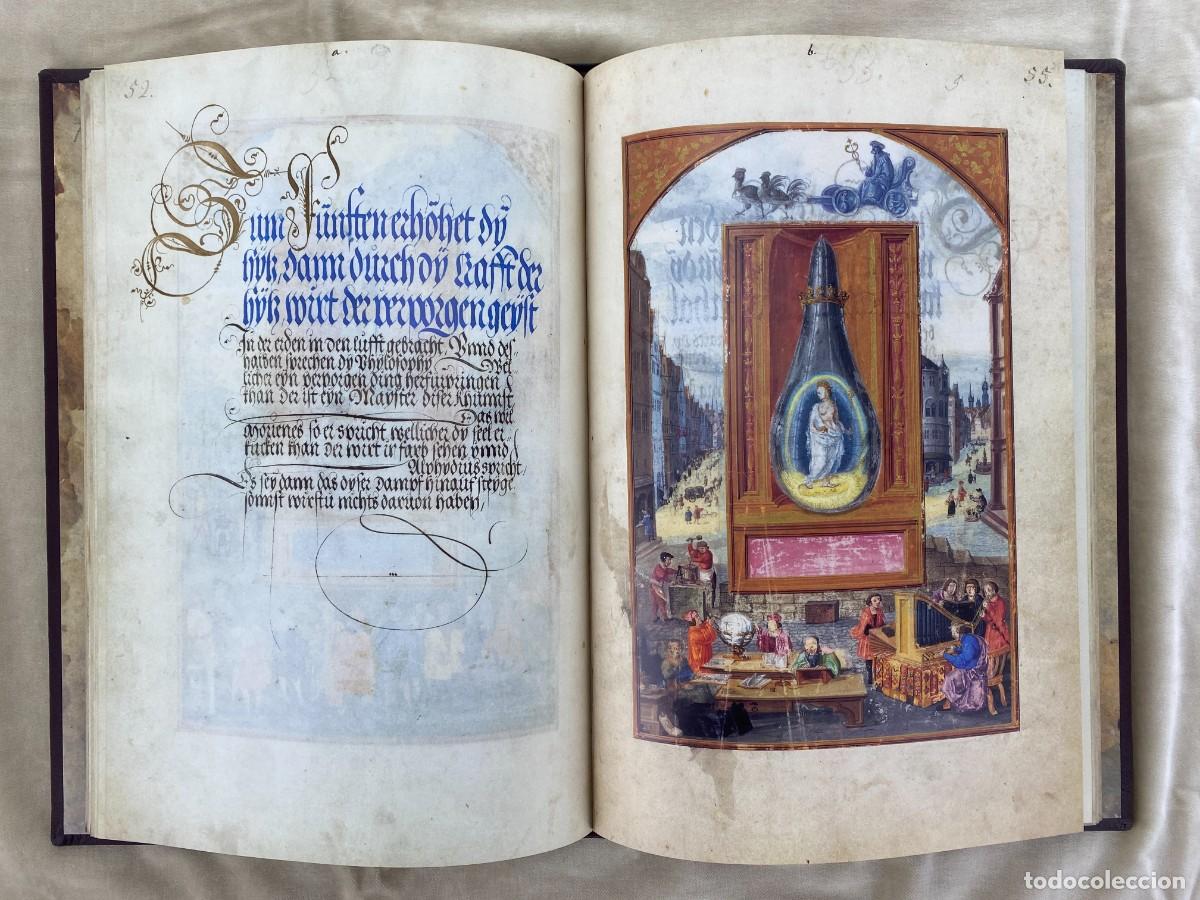 a.
52.
Zum Fünften erhöhet dÿ
hÿtz, dann durch dÿ Krafft der
hÿtz wirt der verborgen geÿst
In der erden in den lufft gebracht, Vnnd des-
halben sprechen dÿ Phylosophÿ Wel-
licher eyn verporgen ding herfurpringen
khan der ist eyn Mayster diser Khunnst,
Das mei
Morienes so er spricht, wellicher dÿ seel er
kücken khan der wirt ir farb sehen vnnd
Alphydius spricht,
Es sey dann das dyser dampf hinauf steyge
sonnst wirstu nichts daruon haben,
b.
55.
todocoleccion